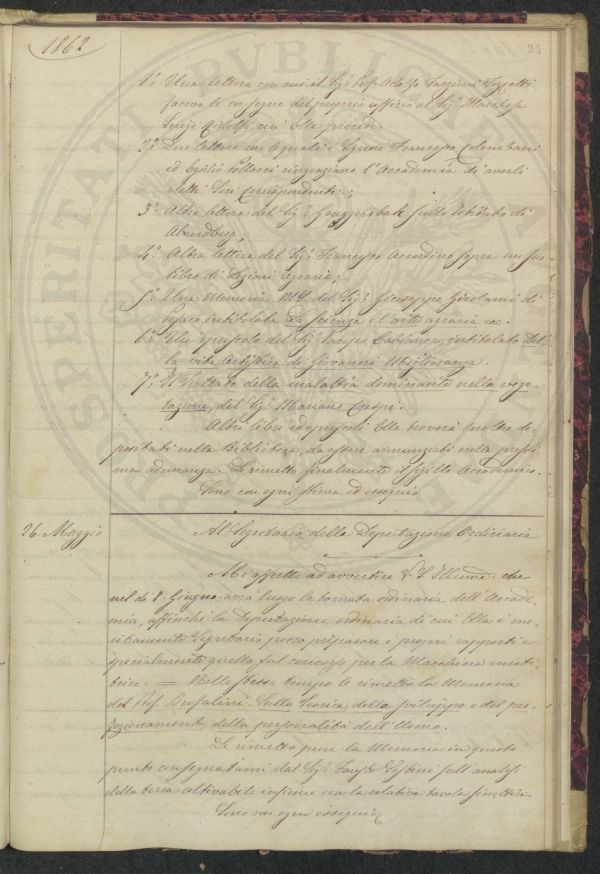 1862
93
1º Una lettera con cui il Sig. Prof. Adolfo Targioni Tozzetti
faceva le consegne del proprio ufficio al Sig. Marchese
Luigi Ridolfi cui Ella succede.
2º Due lettere con le quali i Signori Francesco Colombani
ed Egidio Pollacci ringraziano l'Accademia di averli
eletti Soci Corrispondenti;
3º Altra lettera del Sig. Guggenbühl sullo Istituto di
Abendberg;
4º Altra lettera del Sig. Francesco Accordino sopra un suo
libro di Lezioni agrarie;
5º Una Memoria MS. del Sig. Giuseppe Girolami di
intitolata La Scienza e l'arte agraria ec.
6º Un opuscolo del Sig. Jacopo Cabianca, intitolato Del
la vita artistica di Giovanni Miglioranza.
7º Il Trattato della malattia dominante nella vege-
tazione, del Sig. Mariano Crespi.
Altri libri ed opuscoli Ella troverà inoltre de-
positati nella Biblioteca, da essere annunziati nella prossi-
ma adunanza. Le rimetto finalmente il sigillo Accademico.
Sono con ogni stima ed ossequio
26. Maggio
Al Segretario della Deputazione Ordinaria
Mi affretto ad avvertire V. S. Illuma che
nel dì 8. Giugno avrà luogo la tornata ordinaria dell'Accade-
mia, affinchè la Deputazione ordinaria di cui Ella è me-
ritamente Segretario possa preparare i propri rapporti e
specialmente quello sul concorso per la Macchina mieti-
trice. = Nello stesso tempo le rimetto la Memoria
del Prof. Bufalini Sulla Teorica dello sviluppo e del per-
fezionamento della personalità dell'Uomo.
Le rimetto pure la Memoria in questo
punto consegnatami dal Sig. Fausto Sestini sull'analisi
della terra coltivabile insieme con la relativa tavola sinottica.
Sono con ogni ossequio